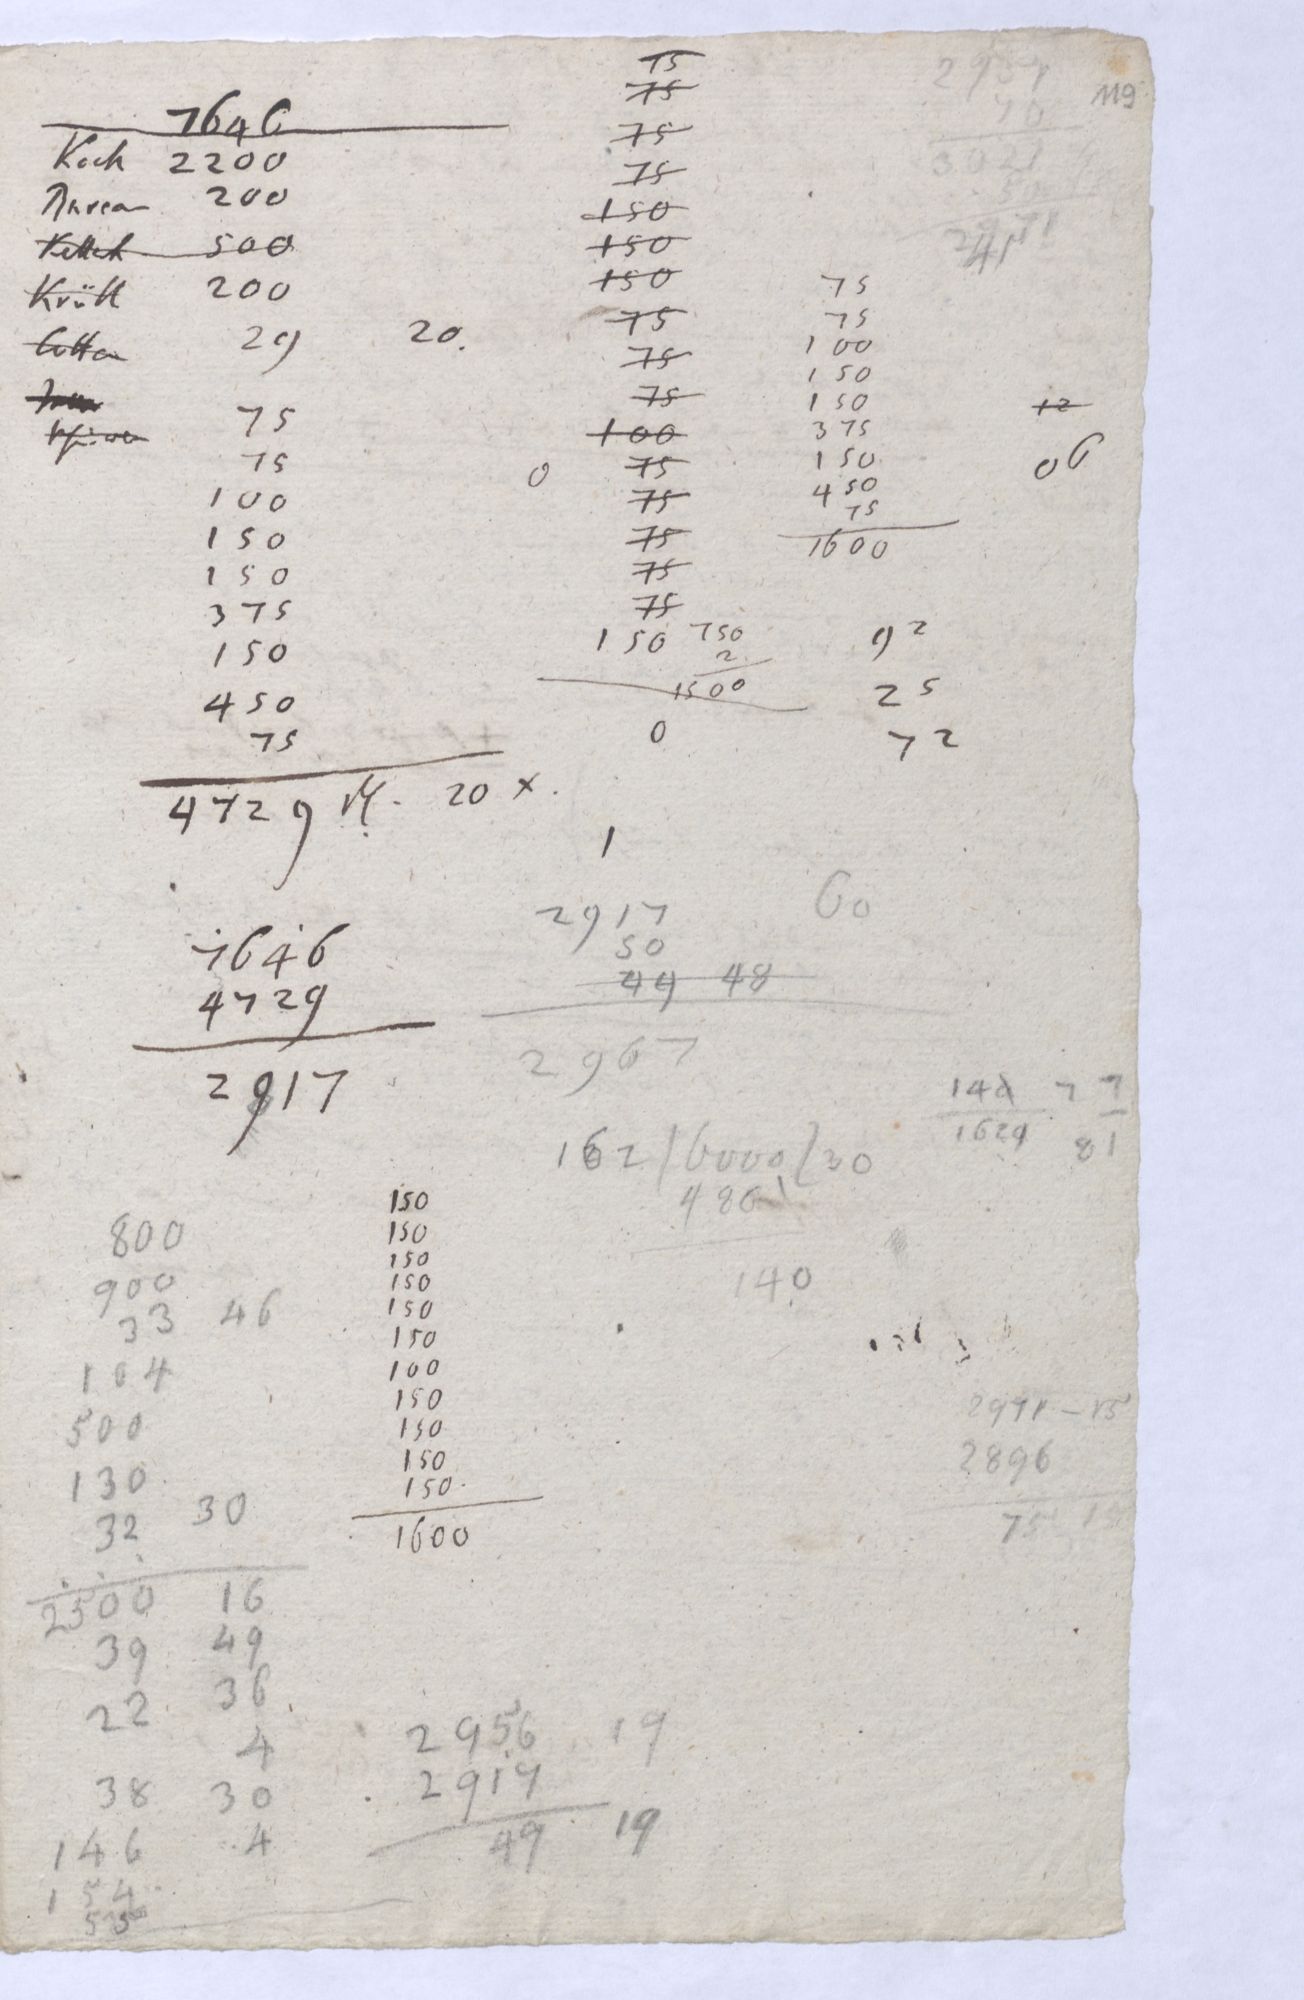 119
7646
Koch 2200
200
500
Krüll 200
Cotta 29 20.
75
75
100
150
150
375
150
450
75
4729 20 x.
7646
4729
2917
75
75
75
75
150
150
150
75
75
75
100
0 75
75
75
75
75
150 750
2
1500
0
1
75
75
100
150
150
375
150
450
75
1600
12
06
92
25
72
2917
50
44 48
2967
60
162 / 6000 / 30
4861
140
77
81
800
900
33 46
104
500
130
32 30
2500 16
39 49
22 36
4
38 30
146 4
154
150
150
150
150
150
150
100
150
150
150
150.
1600
2956 19
2917
49 19
2896
75